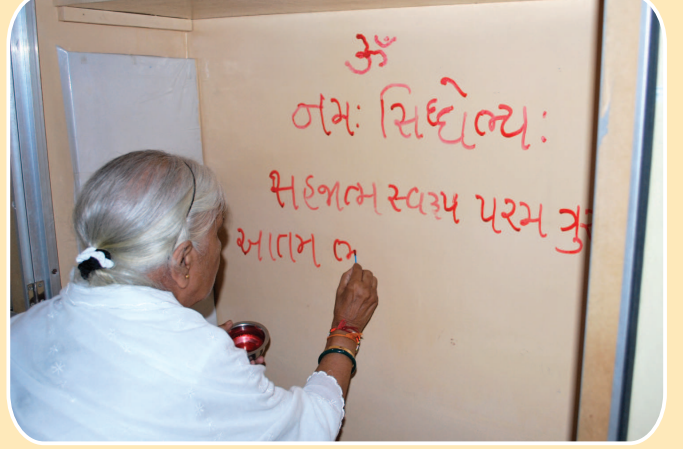 ૐ
નમઃ સિધ્ધેભ્યઃ
સહજાત્મ સ્વરૂપ પરમ ગુરુ
આતમ ભ